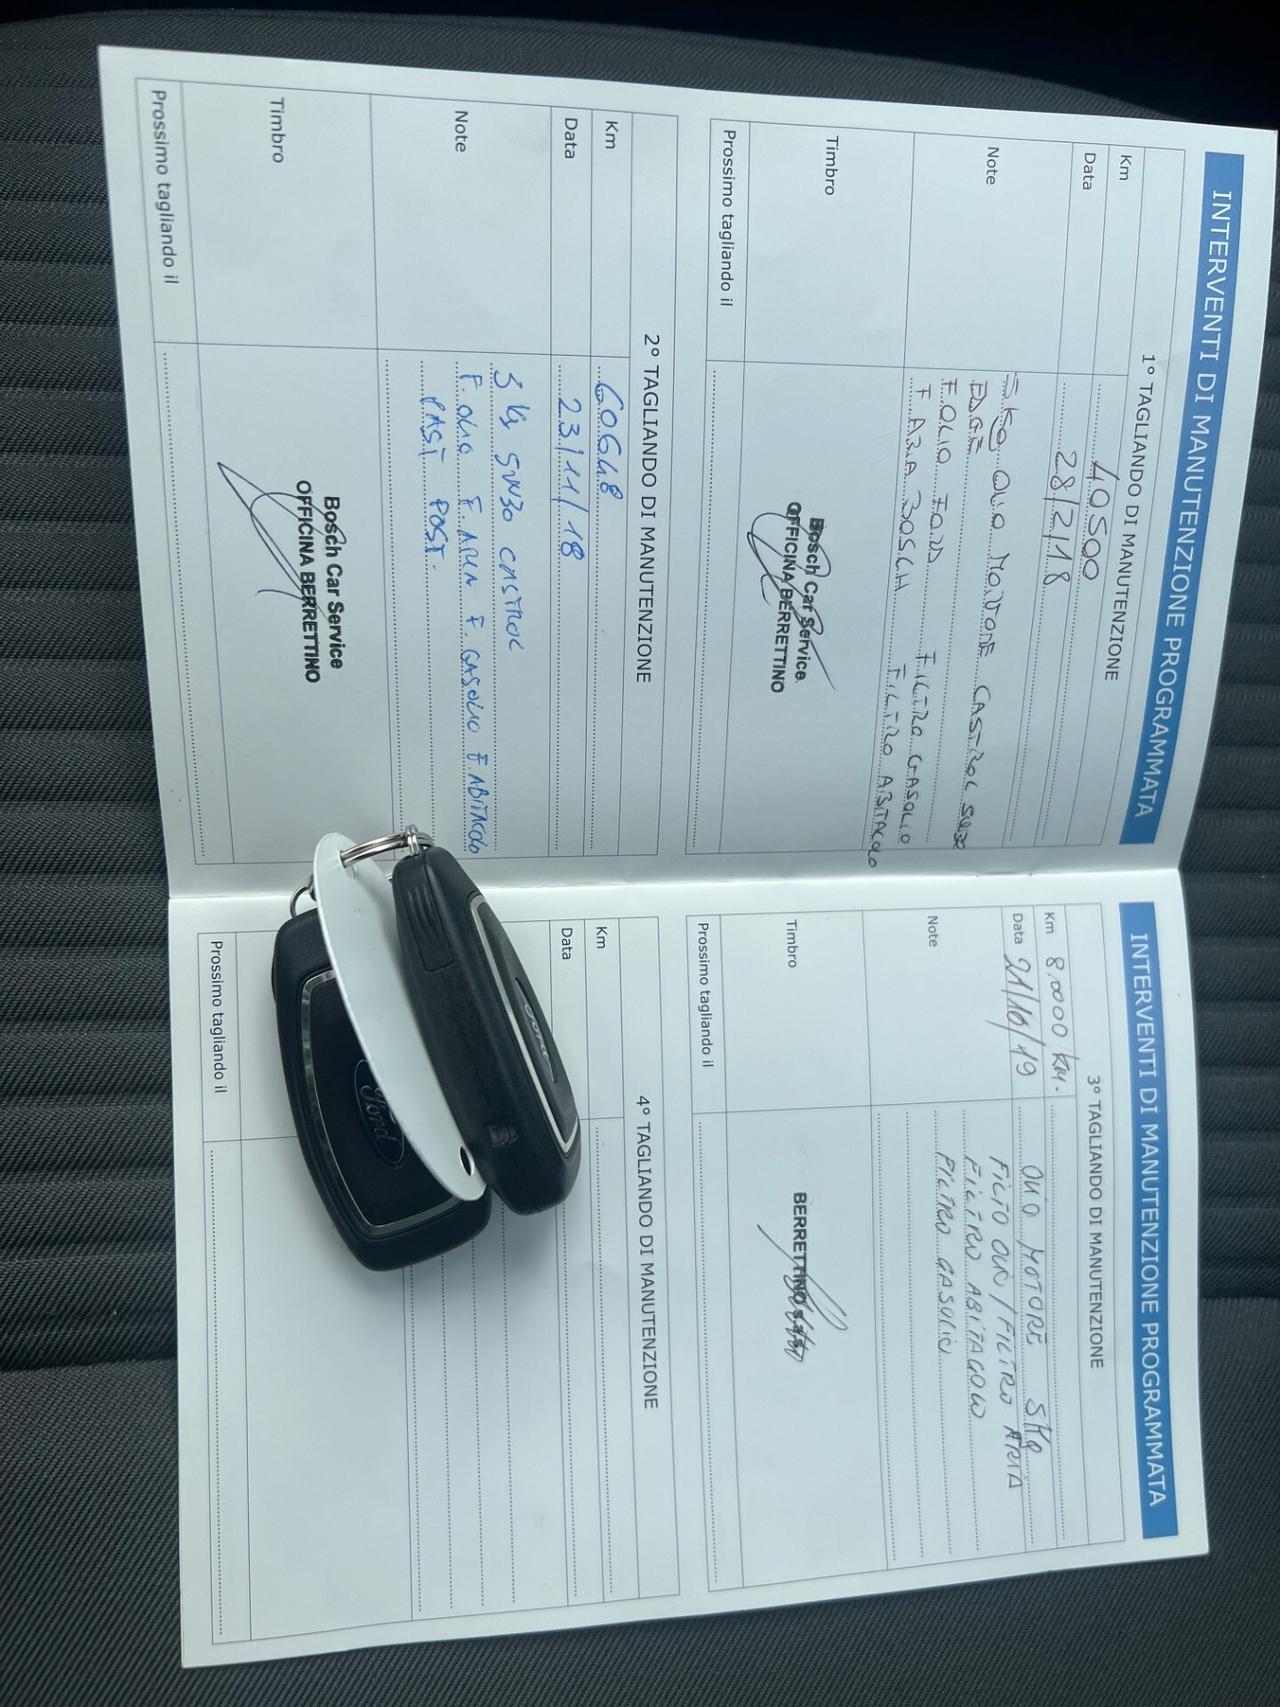 INTERVENTI DI MANUTENZIONE PROGRAMMATA
1° TAGLIANDO DI MANUTENZIONE
Km 40500
Data 28/2/18
Note 5 KG OLIO MOTORE CASTROL 5W30
EDGE
F. OLIO FORD FILTRO GASOLIO
F ARIA BOSCH FILTRO ABITACOLO
Timbro
Bosch Car Service
OFFICINA BERRETTINO
Prossimo tagliando il
2° TAGLIANDO DI MANUTENZIONE
Km 60648
Data 23/11/18
Note 5 KG 5W30 CASTROL
F. OLIO F. ARIA F. GASOLIO F. ABITACOLO
PAST POST.
Timbro
Bosch Car Service
OFFICINA BERRETTINO
Prossimo tagliando il
INTERVENTI DI MANUTENZIONE PROGRAMMATA
3° TAGLIANDO DI MANUTENZIONE
Km 8.0000 KM.
Data 21/10/19
Note OLIO MOTORE 5Kg
FILTO OLIO / FILTRO ARIA
FILTRO ABITACOLO
FILTRO GASOLIO
Timbro
BERRETTINO s.a.s.
Prossimo tagliando il
4° TAGLIANDO DI MANUTENZIONE
Km
Data
Prossimo tagliando il
Ford
Ford